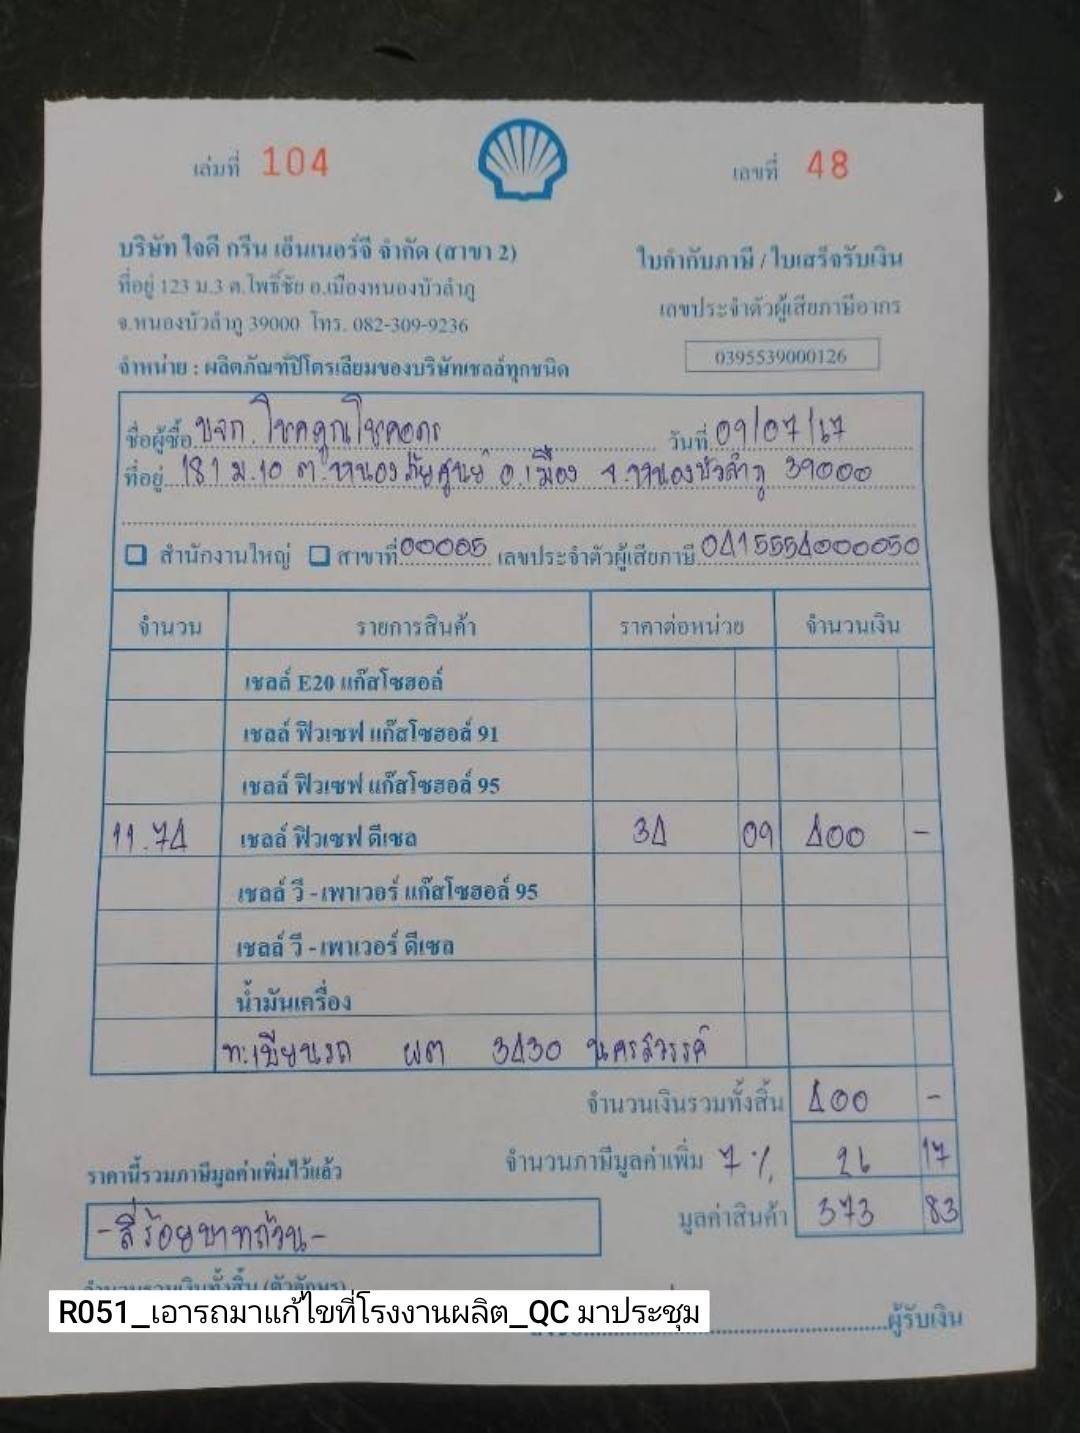 เล่มที่ 104
เลขที่ 48
บริษัท ใจดี กรีน เอ็นเนอร์จี จำกัด (สาขา 2)
ใบกำกับภาษี / ใบเสร็จรับเงิน
ที่อยู่ 123 ม.3 ต.โพธิ์ชัย อ.เมืองหนองบัวลำภู
เลขประจำตัวผู้เสียภาษีอากร
จ.หนองบัวลำภู 39000 โทร. 082-309-9236
0395539000126
จำหน่าย : ผลิตภัณฑ์ปิโตรเลียมของบริษัทเชลล์ทุกชนิด
ชื่อผู้ซื้อ บจก. โชคคูณโชค วันที่ 09/07/67
ที่อยู่ 181 ม.10 ต.หนองภัยศูนย์ อ.เมือง จ.หนองบัวลำภู 39000
สำนักงานใหญ่ สาขาที่ 00005 เลขประจำตัวผู้เสียภาษี 0415554000050
จำนวน รายการสินค้า ราคาต่อหน่วย จำนวนเงิน
เชลล์ E20 แก๊สโซฮอล์
เชลล์ ฟิวเซฟ แก๊สโซฮอล์ 91
เชลล์ ฟิวเซฟ แก๊สโซฮอล์ 95
11.74 เชลล์ ฟิวเซฟ ดีเซล 34 09 400 -
เชลล์ วี - เพาเวอร์ แก๊สโซฮอล์ 95
เชลล์ วี - เพาเวอร์ ดีเซล
น้ำมันเครื่อง
ทะเบียนรถ ผต 3430 นครสวรรค์
จำนวนเงินรวมทั้งสิ้น 400 -
จำนวนภาษีมูลค่าเพิ่ม 7 % 26 17
ราคานี้รวมภาษีมูลค่าเพิ่มไว้แล้ว
มูลค่าสินค้า 373 83
- สี่ร้อยบาทถ้วน -
จำนวนรวมเงินทั้งสิ้น (ตัวอักษร)
R051_เอารถมาแก้ไขที่โรงงานผลิต_QC มาประชุม
ผู้รับเงิน